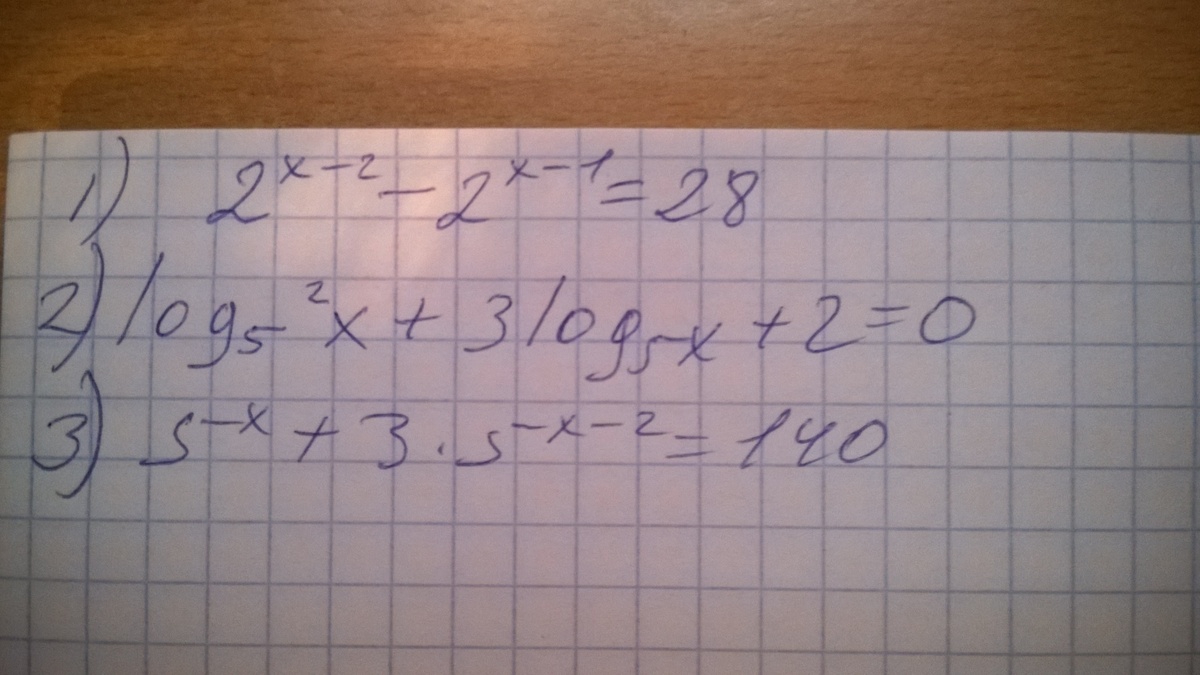 1) 2^{x-2} - 2^{x-1} = 28
2) log₅²x + 3log₅x + 2 = 0
3) 5^{-x} + 3 · 5^{-x-2} = 140